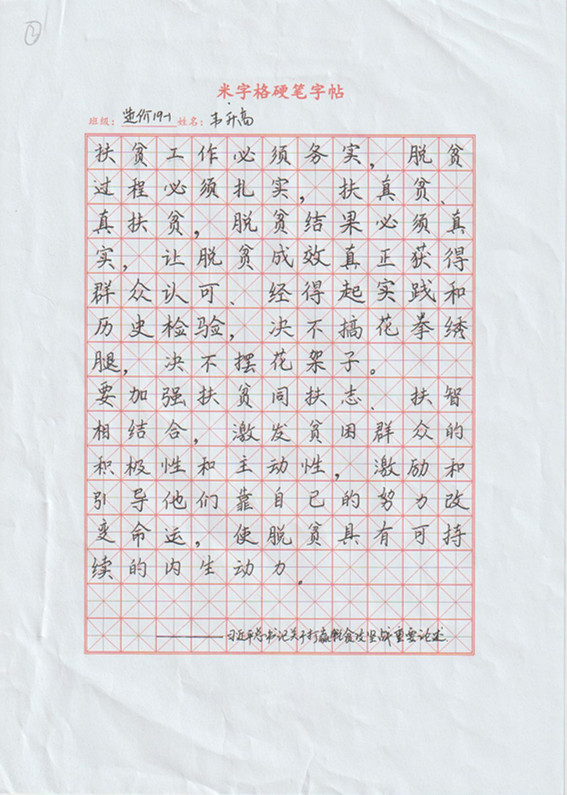 ②
米字格硬笔字帖
班级：造价19-1 姓名：韦升高
扶贫工作必须务实，脱贫
过程必须扎实，扶真贫、
真扶贫，脱贫结果必须真
实，让脱贫成效真正获得
群众认可、经得起实践和
历史检验，决不搞花拳绣
腿，决不摆花架子。
要加强扶贫同扶志、扶智
相结合，激发贫困群众的
积极性和主动性，激励和
引导他们靠自己的努力改
变命运，使脱贫具有可持
续的内生动力。
——习近平总书记关于打赢脱贫攻坚战重要论述